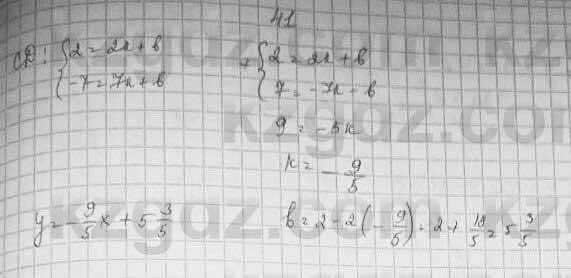 41
CD: { 2 = 2k + b   + { 2 = 2k + b
{ -7 = 7k + b   { 7 = -7k - b
9 = -5k
k = - 9/5
y = - 9/5 x + 5 3/5   b = 2 - 2(- 9/5) = 2 + 18/5 = 5 3/5
kzgdz.com